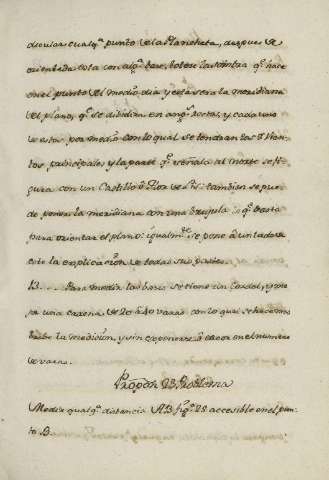 dicular cualqª punto de la Plancheta, despues de
orientada esta con algª base, notese la sombra qᵉ hace
en el punto del medio dia y esta sera la meridiana
del plano, qᵉ se dibidira en angˢ rectos, y cada uno
de estos por medio con lo qual se tendran los 8 Vien-
tos principales y la parte qᵉ señala al norte se fi-
gura con un Castillo ó Flor de Lis: tambien se pue-
de poner la meridiana con una brujula qᵉ basta
para orientar el plano: igualmᵗᵉ se pone á un lado de
este la explicacion de todas sus partes.
13.... Para medir las bases se tiene un Cordel, y
una cadena, de 20 á 40 varas con lo qual se hace
la medicion, y sin exponerse á error en el numero
de varas.
Propon 23. Problema
Medir qualqª distancia AB figª 28 accesible en el pun-
to B.